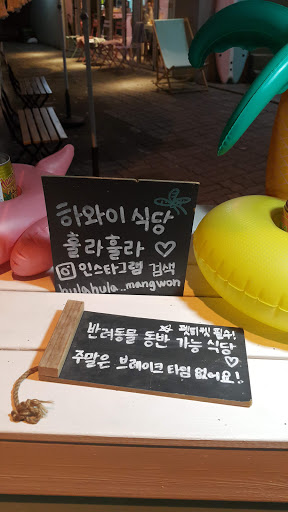 하와이 식당
훌라훌라 ♡
인스타그램 검색
hulahula_mangwon
반려동물 동반 가능 식당
펫티켓 필수!
주말은 브레이크 타임 없어요!